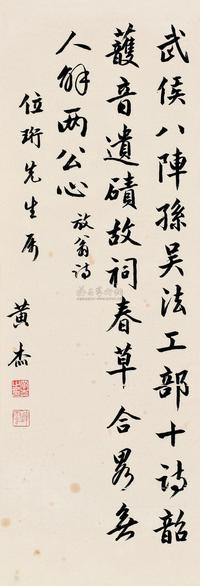 武侯八陣孫吳法工部十詩韶
頀音遺磧故祠春草合略無
人解兩公心 放翁詩
位珩先生属
黃杰